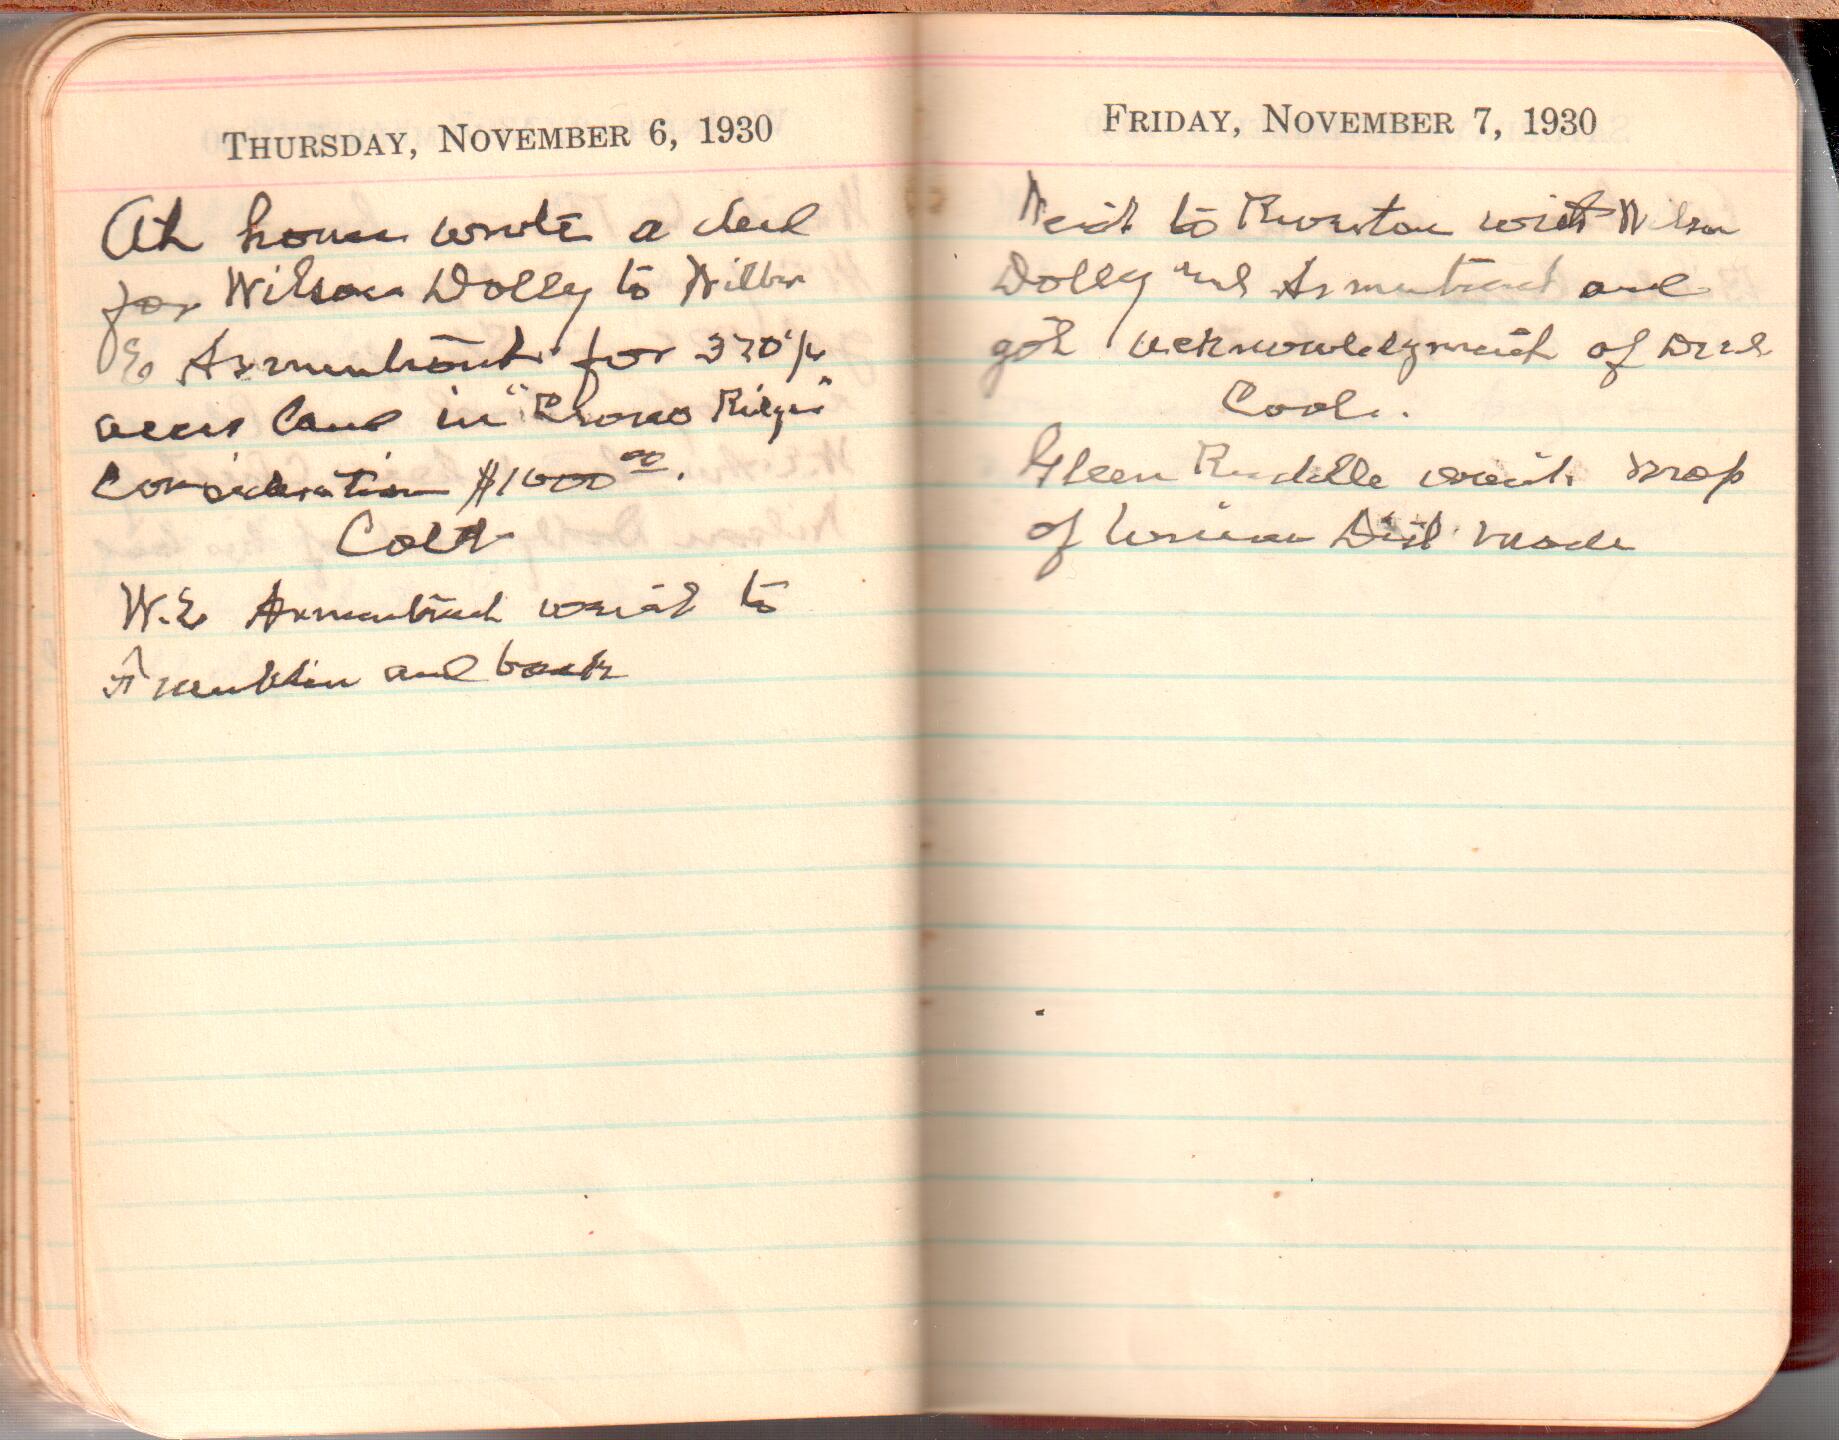 THURSDAY, NOVEMBER 6, 1930
At home wrote a deed
for Wilson Dolly to Wilber
E Armentrout for 370¼
acres Land in
Consideration $1600 00.
Cold
W.E Armentrout went to
Franklin and back
FRIDAY, NOVEMBER 7, 1930
Went to Riverton with Wilson
Dolly and Armentrout and
got acknowledgment of Deed
Cool.
Glenn Ruddle wants map
of Union Dist made